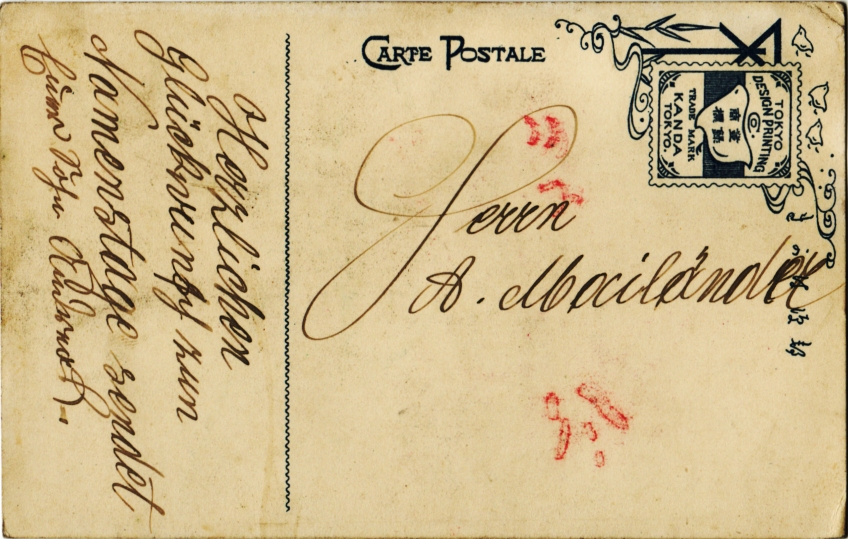 CARTE POSTALE
TOKYO
DESIGN PRINTING
Co.
TRADE MARK
KANDA
TOKYO.
Herrn
A. Mailänder
Herzlichen
Glückwunsch zum
Namenstage sendet